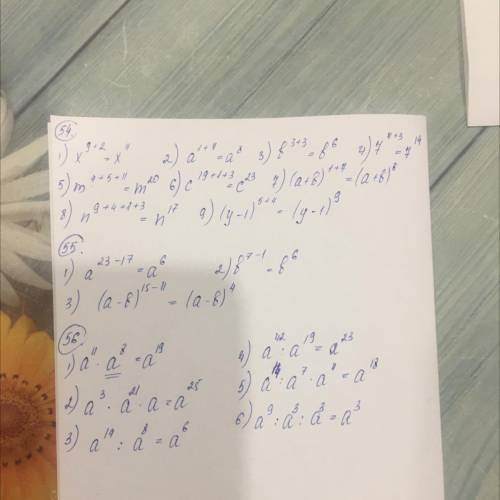 54.
1) x^{9+2} = x^{11} 2) a^{1+7} = a^{8} 3) b^{3+3} = b^{6} 4) 7^{11+3} = 7^{14}
5) m^{4+5+11} = m^{20} 6) c^{19+1+3} = c^{23} 7) (a+b)^{1+7} = (a+b)^{8}
8) n^{9+4+1+3} = n^{17} 9) (y-1)^{5+4} = (y-1)^{9}
55.
1) a^{23-17} = a^{6} 2) b^{7-1} = b^{6}
3) (a-b)^{15-11} = (a-b)^{4}
56.
1) a^{11} · a^{8} = a^{19} 4) a^{42} : a^{19} = a^{23}
2) a^{3} · a^{21} · a = a^{25} 5) a^{7} · a^{18}
3) a^{14} : a^{8} = a^{6} 6) a^{9} : a^{3} : a^{3} = a^{3}